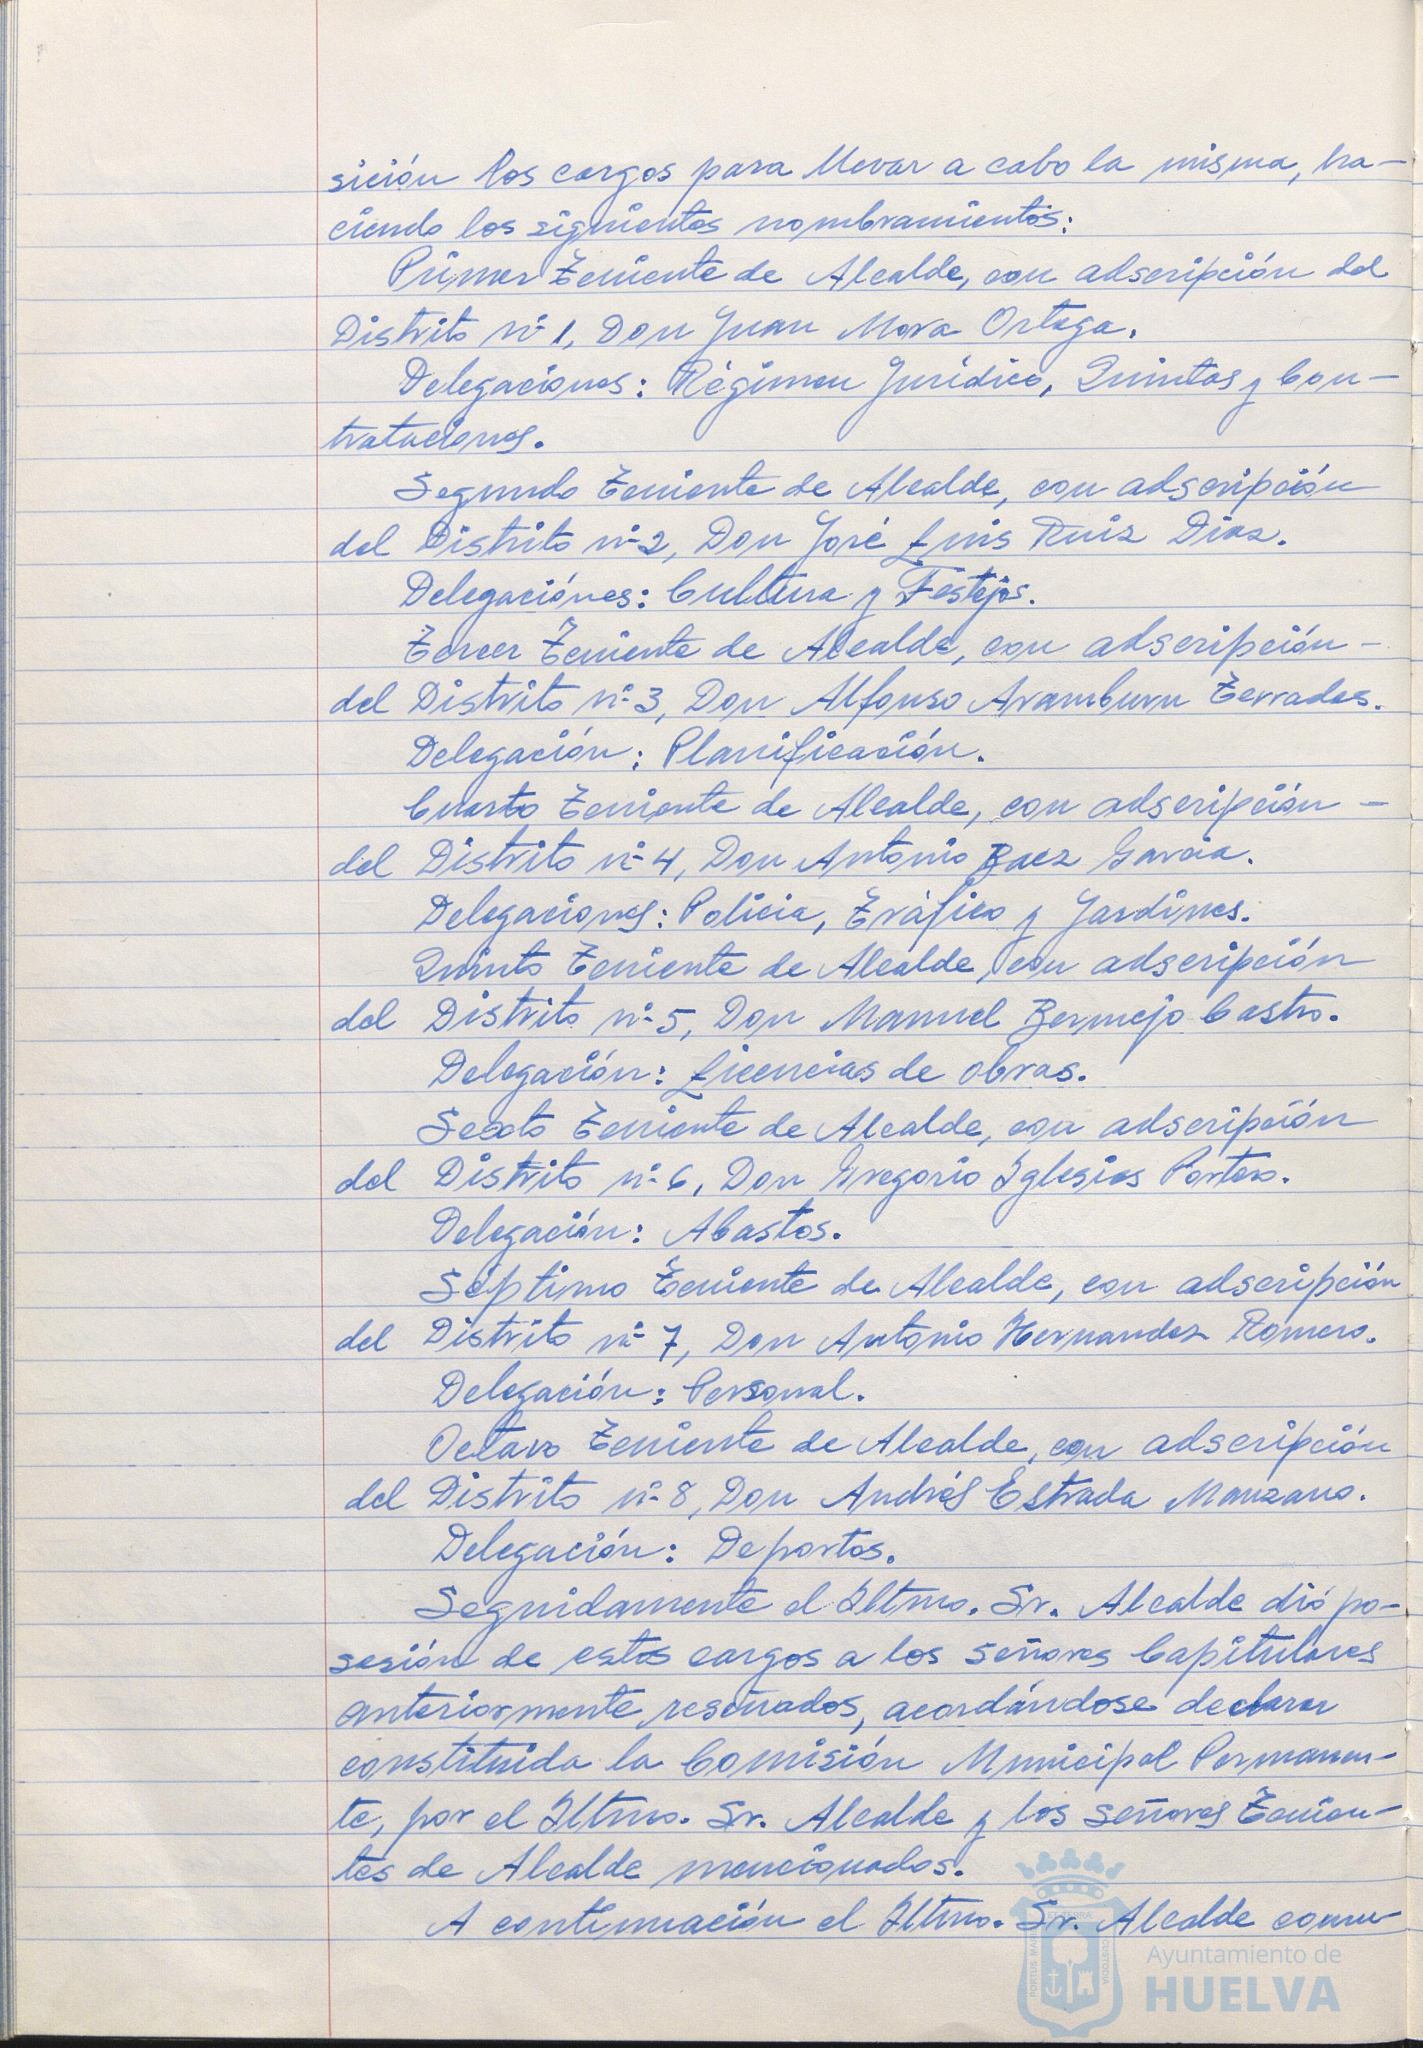 sición los cargos para llevar a cabo la misma, ha-
ciendo los siguientes nombramientos:
Primer Teniente de Alcalde, con adscripción del
Distrito nº 1, Don Juan Mora Ortega.
Delegaciones: Régimen Jurídico, Quintas y Con-
trataciones.
Segundo Teniente de Alcalde, con adscripción
del Distrito nº 2, Don José Luis Ruiz Diaz.
Delegaciónes: Cultura y Festejos.
Tercer Teniente de Alcalde, con adscripción -
del Distrito nº 3, Don Alfonso Aramburu Terrades.
Delegación: Planificación.
Cuarto Teniente de Alcalde, con adscripción -
del Distrito nº 4, Don Antonio Baez Garcia.
Delegaciones: Policia, Tráfico y Jardines.
Quinto Teniente de Alcalde, con adscripción
del Distrito nº 5, Don Manuel Bermejo Castro.
Delegación: Licencias de obras.
Sexto Teniente de Alcalde, con adscripción
del Distrito nº 6, Don Gregorio Iglesias Portero.
Delegación: Abastos.
Séptimo Teniente de Alcalde, con adscripción
del Distrito nº 7, Don Antonio Hernandez Romero.
Delegación: Personal.
Octavo Teniente de Alcalde, con adscripción
del Distrito nº 8, Don Andrés Estrada Manzano.
Delegación: Deportes.
Seguidamente el Iltmo. Sr. Alcalde dió po-
sesión de estos cargos a los señores Capitulares
anteriormente reseñados, acordándose declarar
constituida la Comisión Municipal Permanen-
te, por el Iltmo. Sr. Alcalde y los señores Tenien-
tes de Alcalde mencionados.
A continuación el Iltmo. Sr. Alcalde comu-
PORTUS MARIS ET TERRÆ CUSTODIA
Ayuntamiento de
HUELVA